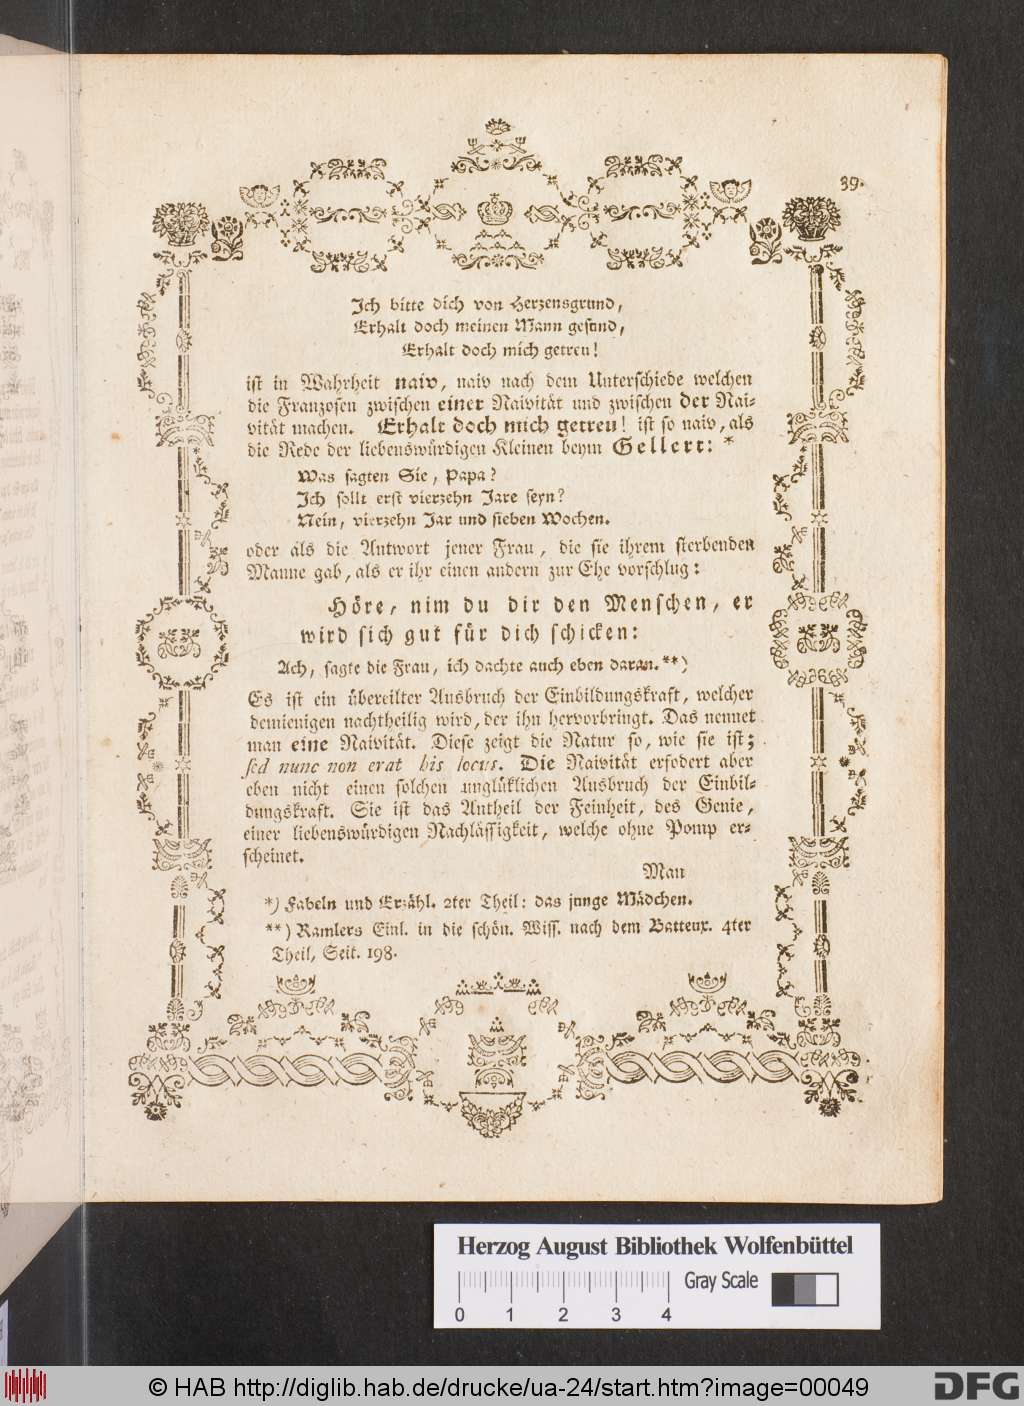 39.
Ich bitte dich von Herzensgrund,
Erhalt doch meinen Mann gesund,
Erhalt doch mich getreu!
ist in Wahrheit naiv, naiv nach dem Unterschiede welchen
die Franzosen zwischen einer Naivität und zwischen der Nai-
vität machen. Erhalt doch mich getreu! ist so naiv, als
die Rede der liebenswürdigen Kleinen beym Gellert: *
Was sagten Sie, Papa?
Ich sollt erst vierzehn Jare seyn?
Nein, vierzehn Jar und sieben Wochen.
oder als die Antwort jener Frau, die sie ihrem sterbenden
Manne gab, als er ihr einen andern zur Ehe vorschlug:
Höre, nim du dir den Menschen, er
wird sich gut für dich schicken:
Ach, sagte die Frau, ich dachte auch eben daran.**)
Es ist ein übereilter Ausbruch der Einbildungskraft, welcher
demienigen nachtheilig wird, der ihn hervorbringt. Das nennet
man eine Naivität. Diese zeigt die Natur so, wie sie ist;
sed nunc non erat his locus. Die Naivität erfodert aber
eben nicht einen solchen unglüklichen Ausbruch der Einbil-
dungskraft. Sie ist das Antheil der Feinheit, des Genie,
einer liebenswürdigen Nachlässigkeit, welche ohne Pomp er-
scheinet.
Man
*) Fabeln und Erzähl. 2ter Theil: das junge Mädchen.
**) Ramlers Einl. in die schön. Wiss. nach dem Batteux. 4ter
Theil, Seit. 198.
Herzog August Bibliothek Wolfenbüttel
Gray Scale
0 1 2 3 4
© HAB http://diglib.hab.de/drucke/ua-24/start.htm?image=00049
DFG